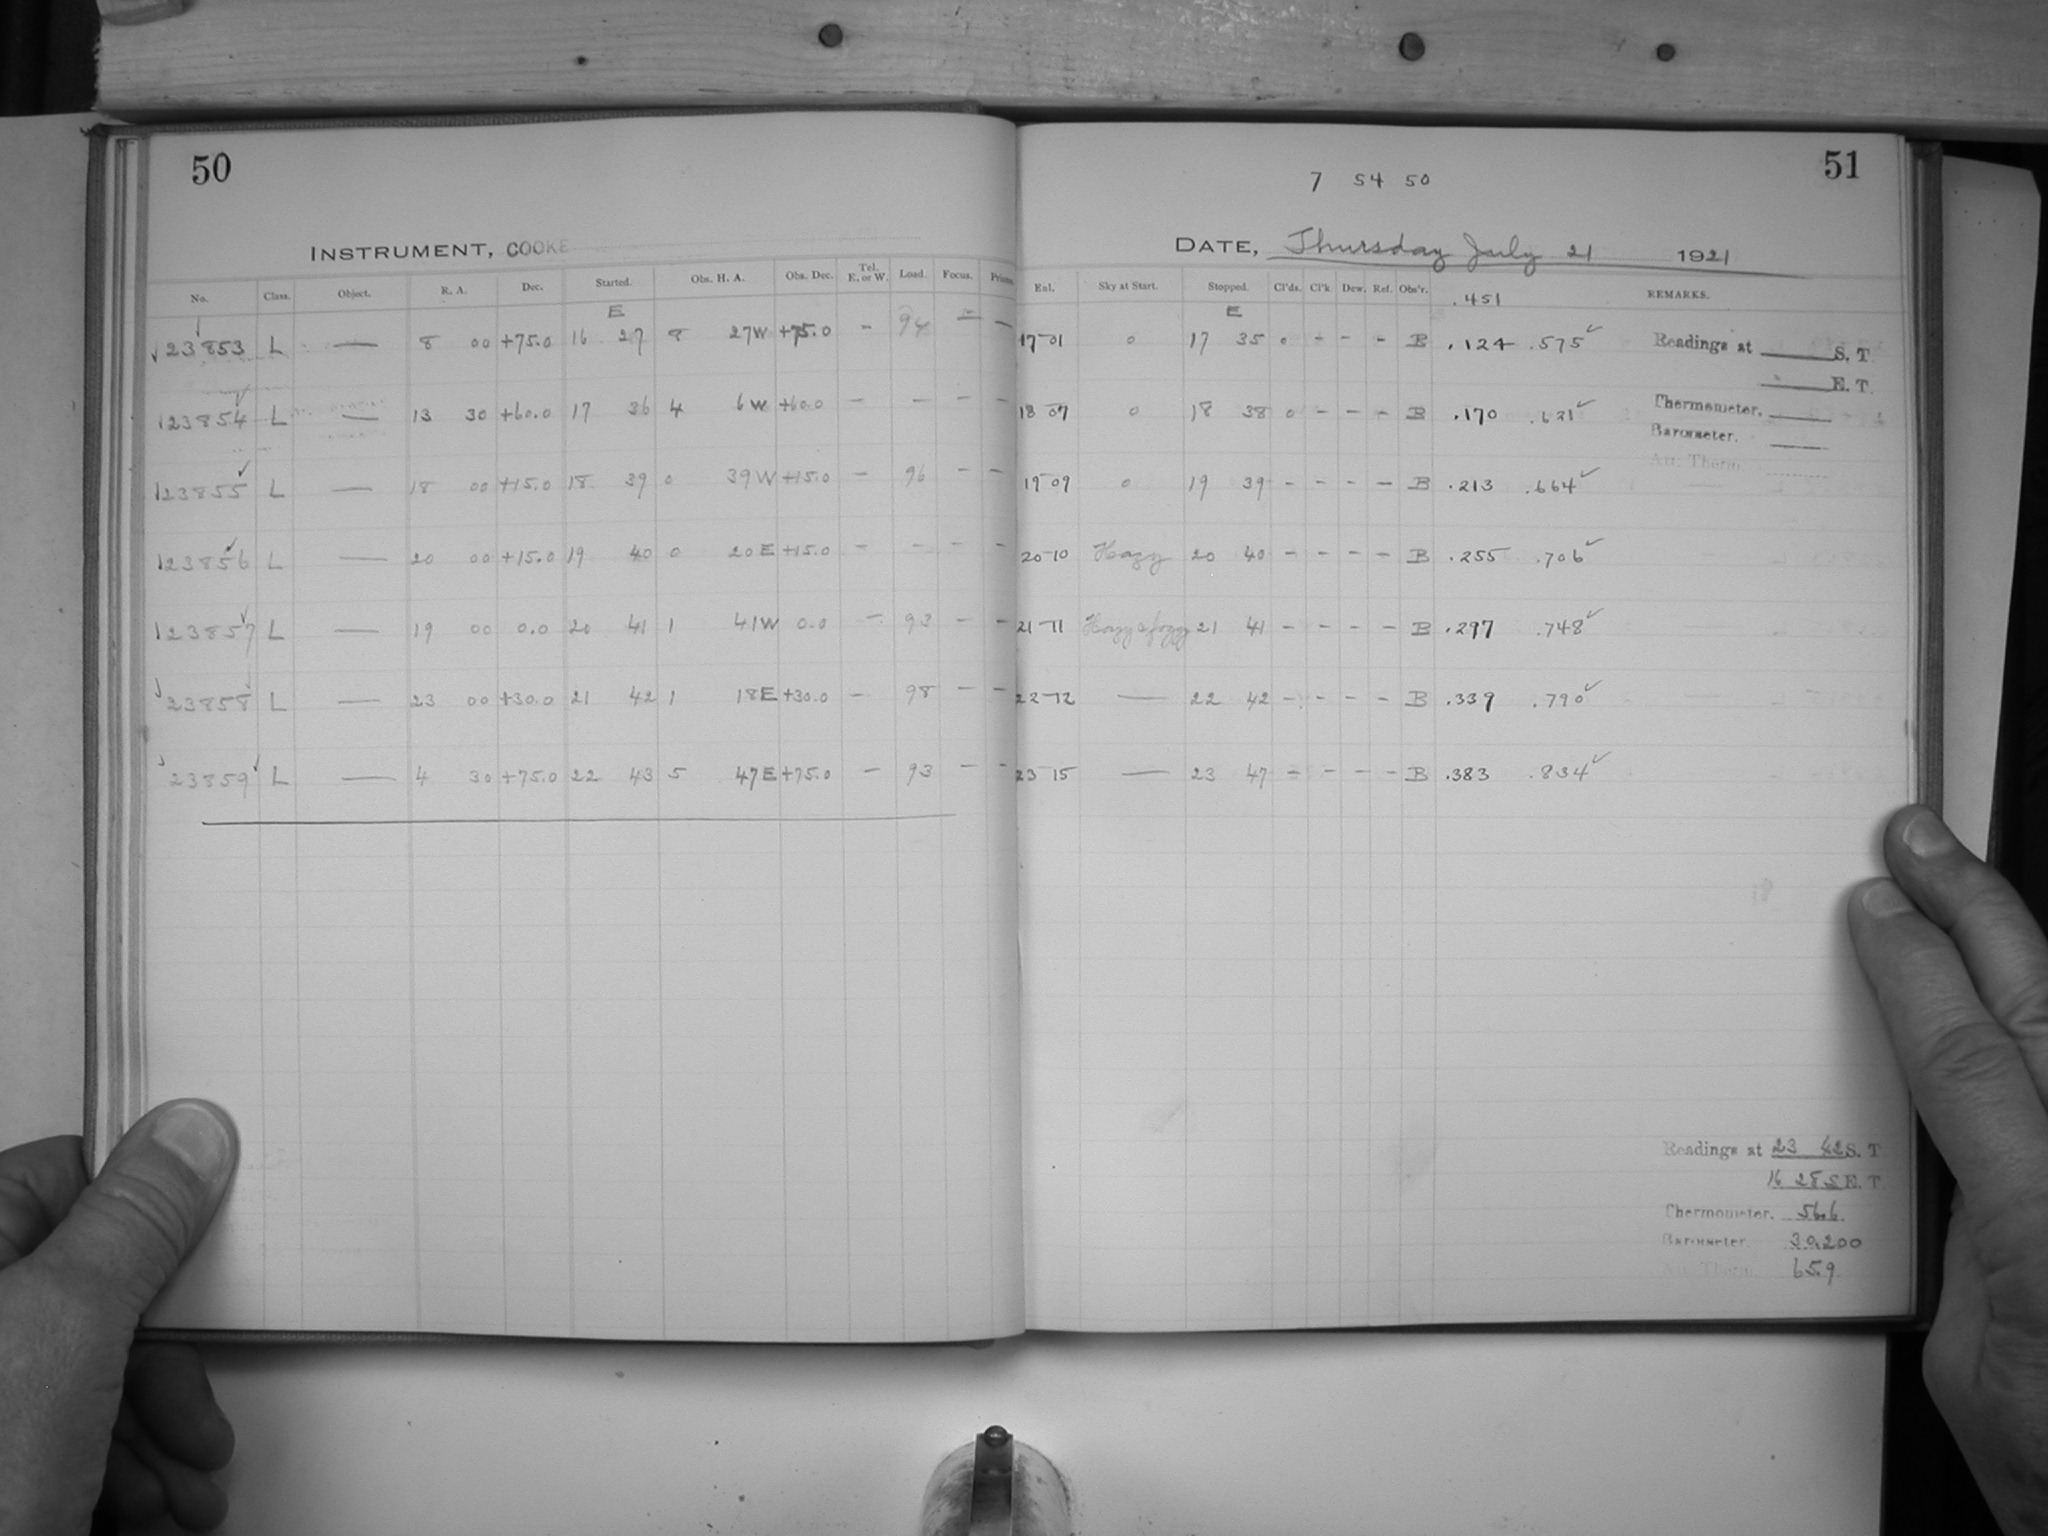 50
INSTRUMENT, COOKE
No. Class. Object. R. A. Dec. Started. Obs. H. A. Obs. Dec. Tel. E. or W. Load. Focus.
E
23853 L — 8 00 +75.0 16 27 8 27W +75.0 - 94 — —
23854 L — 13 30 +60.0 17 36 4 6W +60.0 - - - -
23855 L — 18 00 +15.0 18 39 0 39W +15.0 - 96 - -
23856 L — 20 00 +15.0 19 40 0 20E +15.0 - - - -
23857 L — 19 00 0.0 20 41 1 41W 0.0 - 93 - -
23858 L — 23 00 +30.0 21 42 1 18E +30.0 - 98 - -
23859 L — 4 30 +75.0 22 43 5 47E +75.0 - 93 - -
51
7 54 50
DATE, Thursday July 21 1921
Enl. Sky at Start. Stopped. Cl'ds. Cl'k Dew. Ref. Obs'r. .451 REMARKS.
E
17-01 0 17 35 0 - - - B .124 .575 ✓
18 07 0 18 38 0 - - - B .170 .621 ✓
19 09 0 19 39 - - - - B .213 .664 ✓
20-10 Hazy 20 40 - - - - B .255 .706 ✓
21-11 Hazy & foggy 21 41 - - - - B .297 .748 ✓
22-12 — 22 42 - - - - B .339 .790 ✓
23 15 — 23 47 - - - - B .383 .834 ✓
Readings at ____ S. T
____ E. T.
Thermometer. ____
Barometer. ____
Att. Therm.
Readings at 23 42 S. T
16 28 5 E. T.
Thermometer. 56.6
Barometer. 30.200
Att. Therm. 65.9